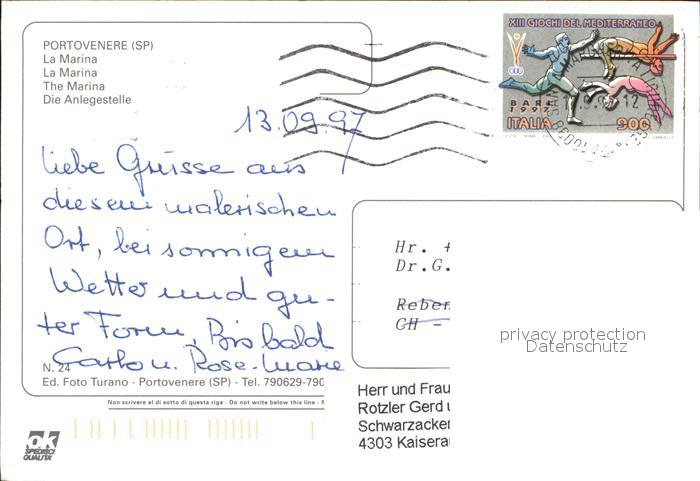 PORTOVENERE (SP)
La Marina
La Marina
The Marina
Die Anlegestelle
XIII GIOCHI DEL MEDITERRANEO
BARI
1997
ITALIA 900
13.09.97
liebe Grüsse aus
diesem malerischen
Ort, bei sonnigem
Wetter und gu-
ter Form, Bis bald
Carlo u. Rose-Marie
Hr. +
Dr.G.
Reben
CH -
privacy protection
Datenschutz
N. 24
Ed. Foto Turano - Portovenere (SP) - Tel. 790629-790
Herr und Frau
Rotzler Gerd u
Schwarzacker
4303 Kaiserau
Non scrivere al di sotto di questa riga - Do not write below this line - N
ok
SPEDISCI
QUALITÀ